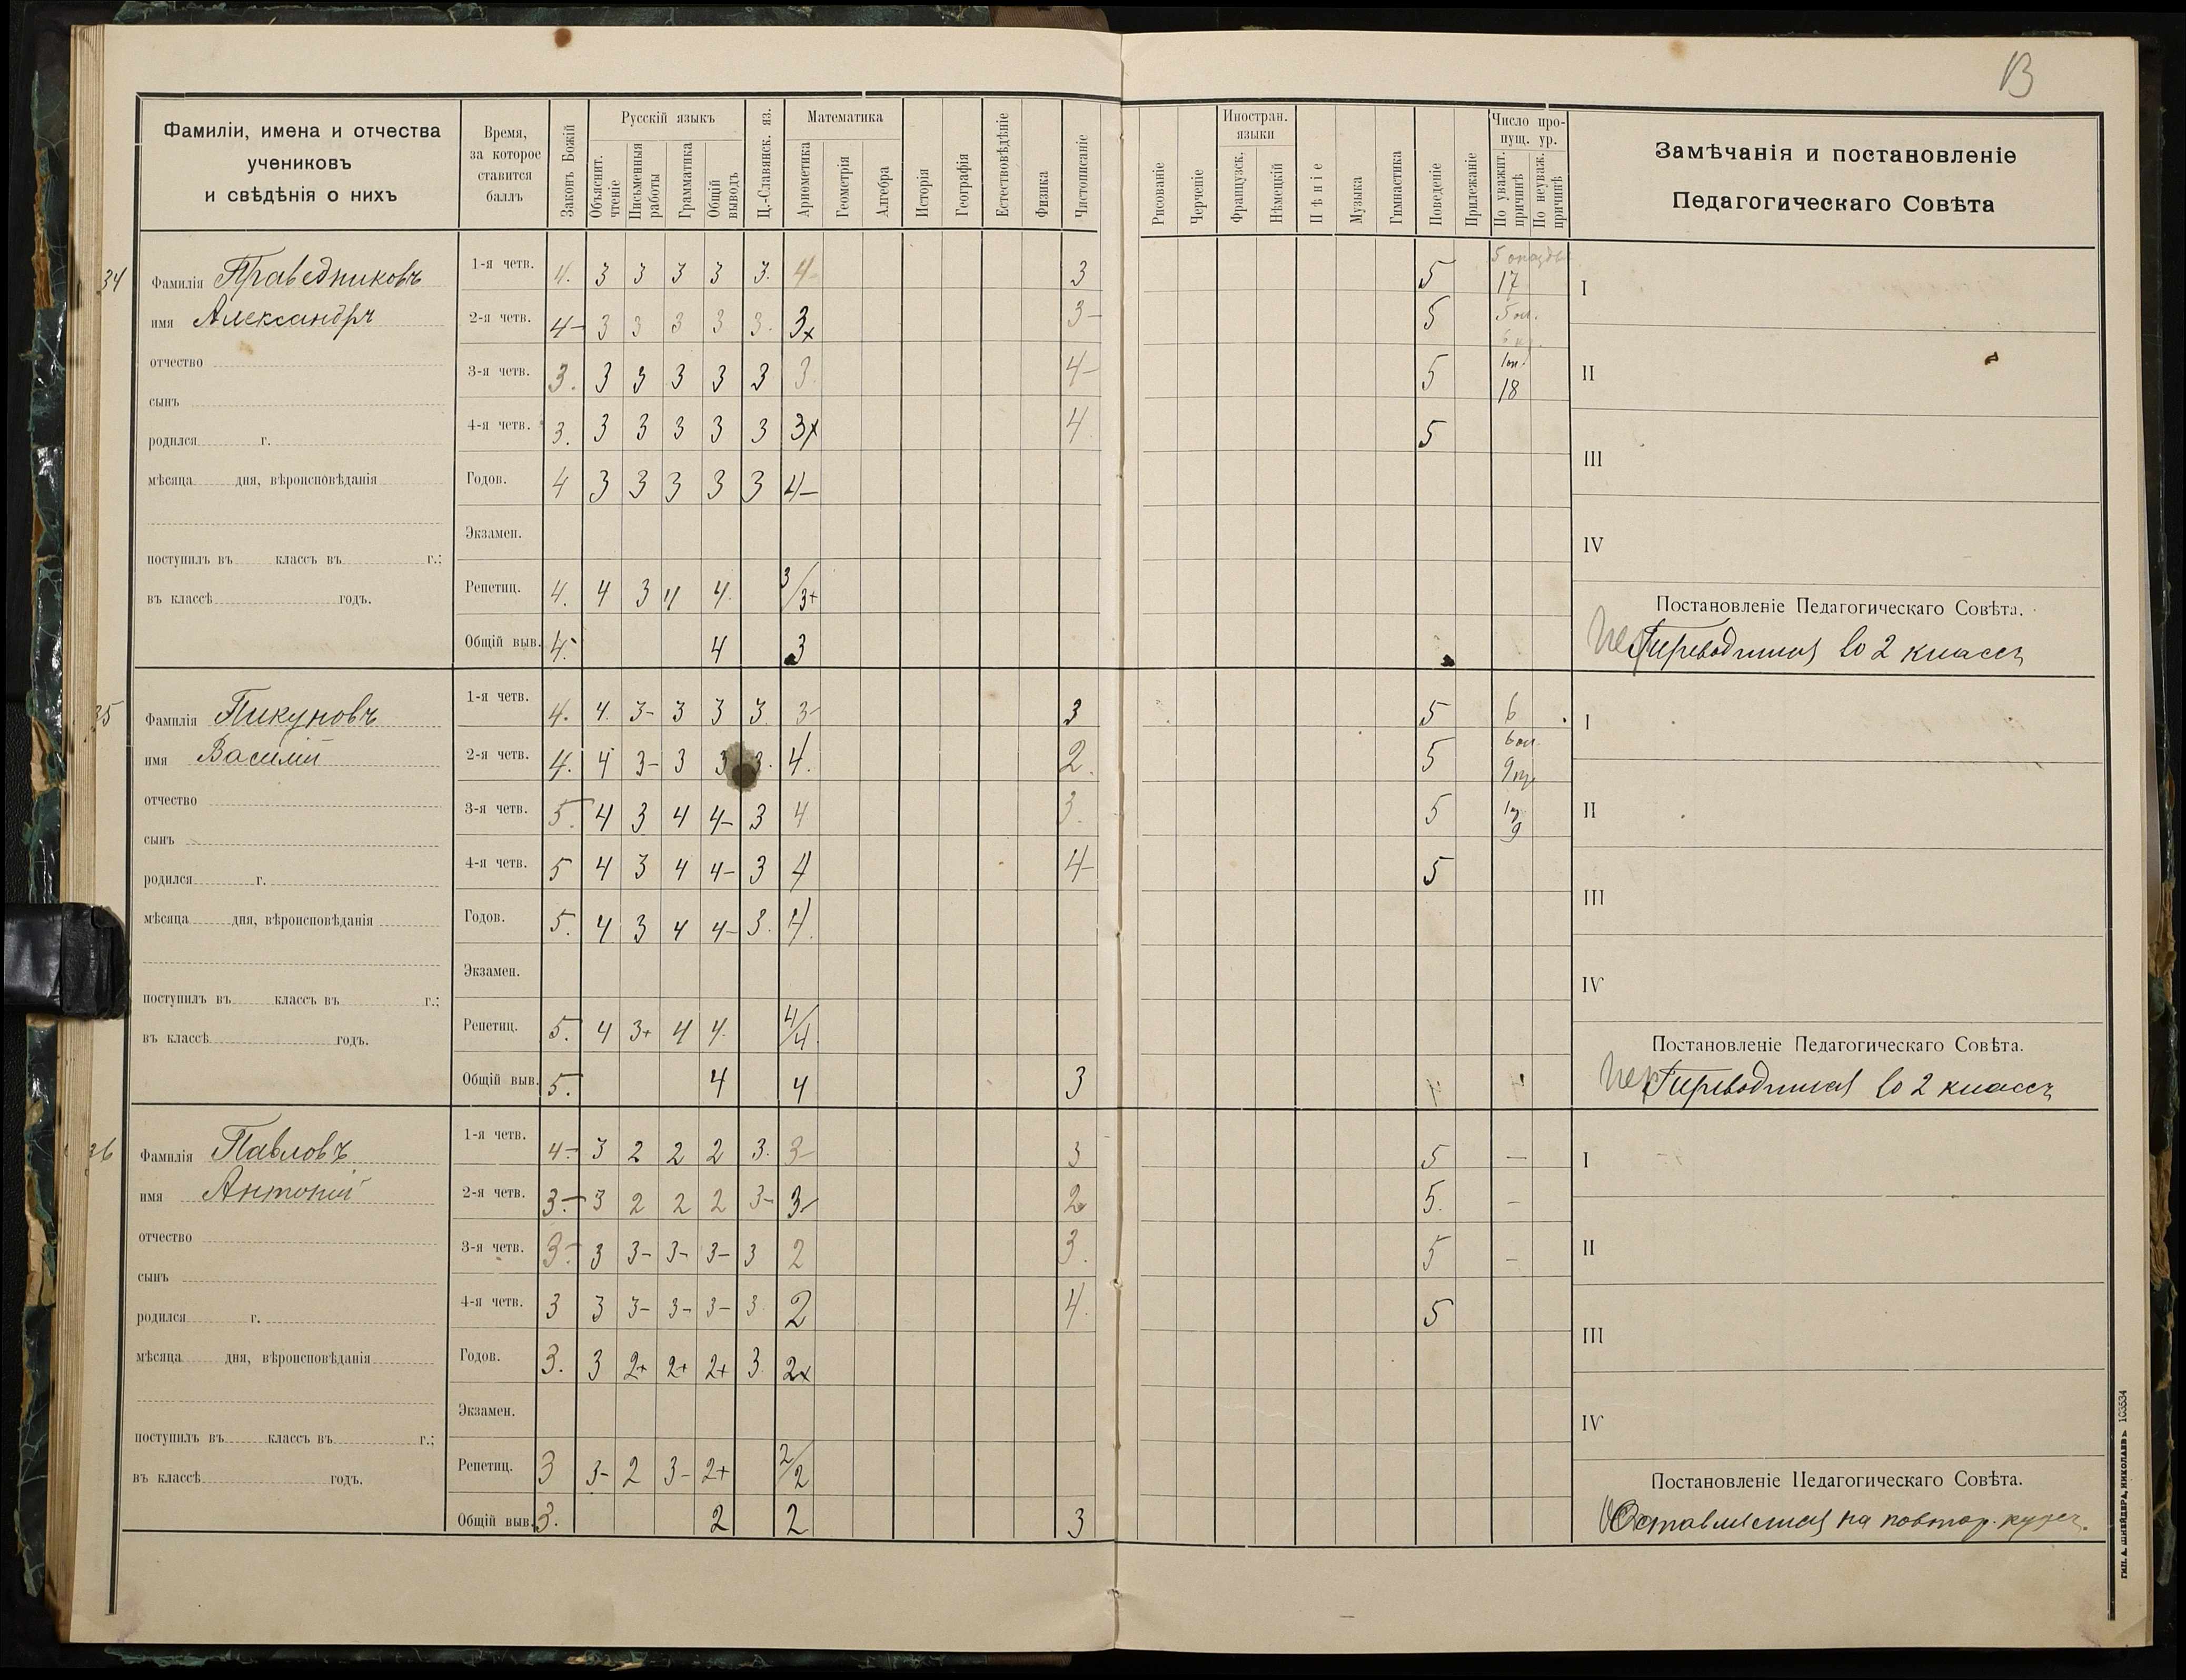 13
Фамиліи, имена и отчества
учениковъ
и свѣдѣнія о нихъ
Время,
за которое
ставится
баллъ
Законъ Божій
Русскій языкъ
Объяснит. чтеніе
Письменныя работы
Грамматика
Общій выводъ
Ц.-Славянск. яз.
Математика
Ариѳметика
Геометрія
Алгебра
Исторія
Географія
Естествовѣдѣніе
Физика
Чистописаніе
Рисованіе
Черченіе
Иностран. языки
Французск.
Нѣмецкій
Пѣніе
Музыка
Гимнастика
Поведеніе
Прилежаніе
Число пропущ. ур.
По уважит. причинѣ
По неуваж. причинѣ
Замѣчанія и постановленіе
Педагогическаго Совѣта
34
Фамилія Праведниковъ
имя Александръ
отчество
сынъ
родился г.
мѣсяца дня, вѣроисповѣданія
поступилъ въ классъ въ г.;
въ классѣ годъ.
1-я четв. 4. 3 3 3 3 3. 4- 3 5 17
2-я четв. 4- 3 3 3 3 3. 3x 3- 5 5 оп.
3-я четв. 3. 3 3 3 3 3 3. 4- 5 1оп. 18
4-я четв. 3. 3 3 3 3 3 3x 4. 5
Годов. 4 3 3 3 3 3 4-
Экзамен.
Репетиц. 4. 4 3 4 4. 3/3+
Общій выв. 4. 4 3
I
II
III
IV
Постановленіе Педагогическаго Совѣта.
Пер Переводится во 2 классъ
35
Фамилія Пикуновъ
имя Василій
отчество
сынъ
родился г.
мѣсяца дня, вѣроисповѣданія
поступилъ въ классъ въ г.;
въ классѣ годъ.
1-я четв. 4. 4. 3- 3 3 3. 3- 3 5 6
2-я четв. 4. 4 3- 3 3 3. 4. 2. 5 6 оп. 9
3-я четв. 5. 4 3 4 4- 3 4 3. 5 9
4-я четв. 5 4 3 4 4- 3 4 4- 5
Годов. 5. 4 3 4 4- 3. 4.
Экзамен.
Репетиц. 5. 4 3+ 4 4. 4/4.
Общій выв. 5. 4 4 3
I
II
III
IV
Постановленіе Педагогическаго Совѣта.
Пер Переводится во 2 классъ
36
Фамилія Павловъ
имя Антоній
отчество
сынъ
родился г.
мѣсяца дня, вѣроисповѣданія
поступилъ въ классъ въ г.;
въ классѣ годъ.
1-я четв. 4- 3 2 2 2 3. 3- 3 5 —
2-я четв. 3- 3 2 2 2 3- 3- 2 5. —
3-я четв. 3- 3 3- 3- 3- 3 2 3. 5 —
4-я четв. 3 3 3- 3- 3- 3. 2 4. 5
Годов. 3. 3 2+ 2+ 2+ 3. 2x
Экзамен.
Репетиц. 3 3- 2 3- 2+ 2/2
Общій выв. 3. 2 2 3
I
II
III
IV
Постановленіе Педагогическаго Совѣта.
Оставляется на повтор. курсъ.
ТИП. А. ШНЕЙДЕРА, НИКОЛАЕВЪ 103534